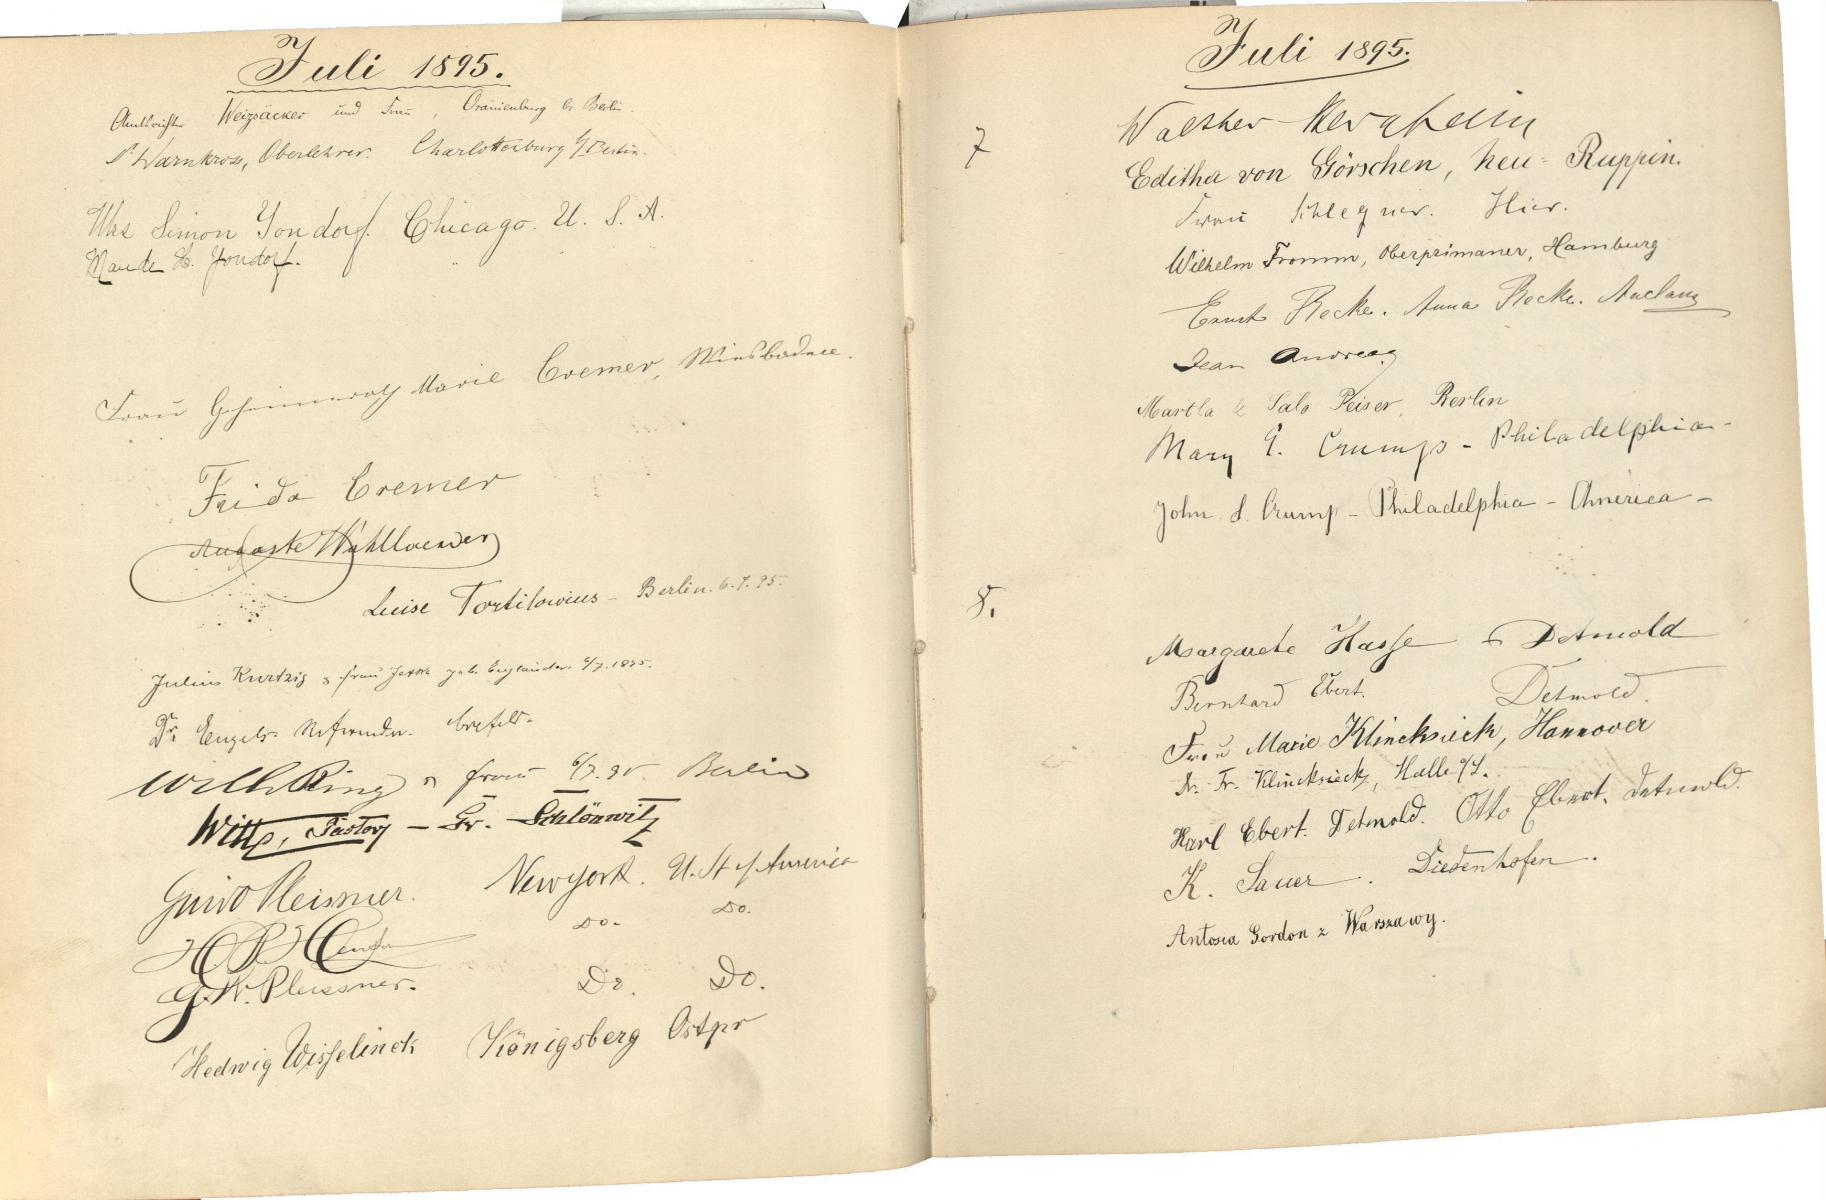 Juli 1895.
Amtsrichter Weizsäcker und Frau, Oranienburg b. Berlin.
Dr Warnkross, Oberlehrer. Charlottenburg b/Berlin.
Mrs Simon Yondorf. Chicago. U. S. A.
Maude H. Yondorf. "
Frau Geheimerath Marie Cremer, Wiesbaden.
Frida Cremer
Auguste
Luise Tortilowius - Berlin. 6.7.95.
Julius Kurtzig & Frau geb. 6/7.1895.
Dr. Engels. Referendar. Crefeld.
Wilh Ring u frau 6/7.95 Berlin
Witte, Pastor - Gr. Schlönwitz
Guido Pleissner. New York. U. St of America
Do. Do.
G. W. Pleissner. Do. Do.
Hedwig Wisselinck Königsberg Ostpr
Juli 1895.
7
Walther
Editha von Görschen, Neu-Ruppin.
Frau Schlegner. Hier.
Wilhelm Fromm, Oberprimaner, Hamburg
Ernst Recke. Anna Recke. Anclam
Jean Andreae
Martha & Salo Peiser, Berlin
Mary E. Crump - Philadelphia -
John S. Crump - Philadelphia - America -
8.
Margarete Hasse Detmold
Bernhard Ebert. Detmold.
Frau Marie Klincksieck, Hannover
Dr. Fr. Klincksieck, Halle a/S.
Karl Ebert. Detmold. Otto Ebert. Detmold.
K. Sauer. Diedenhofen.
Antosia Gordon z Warszawy.